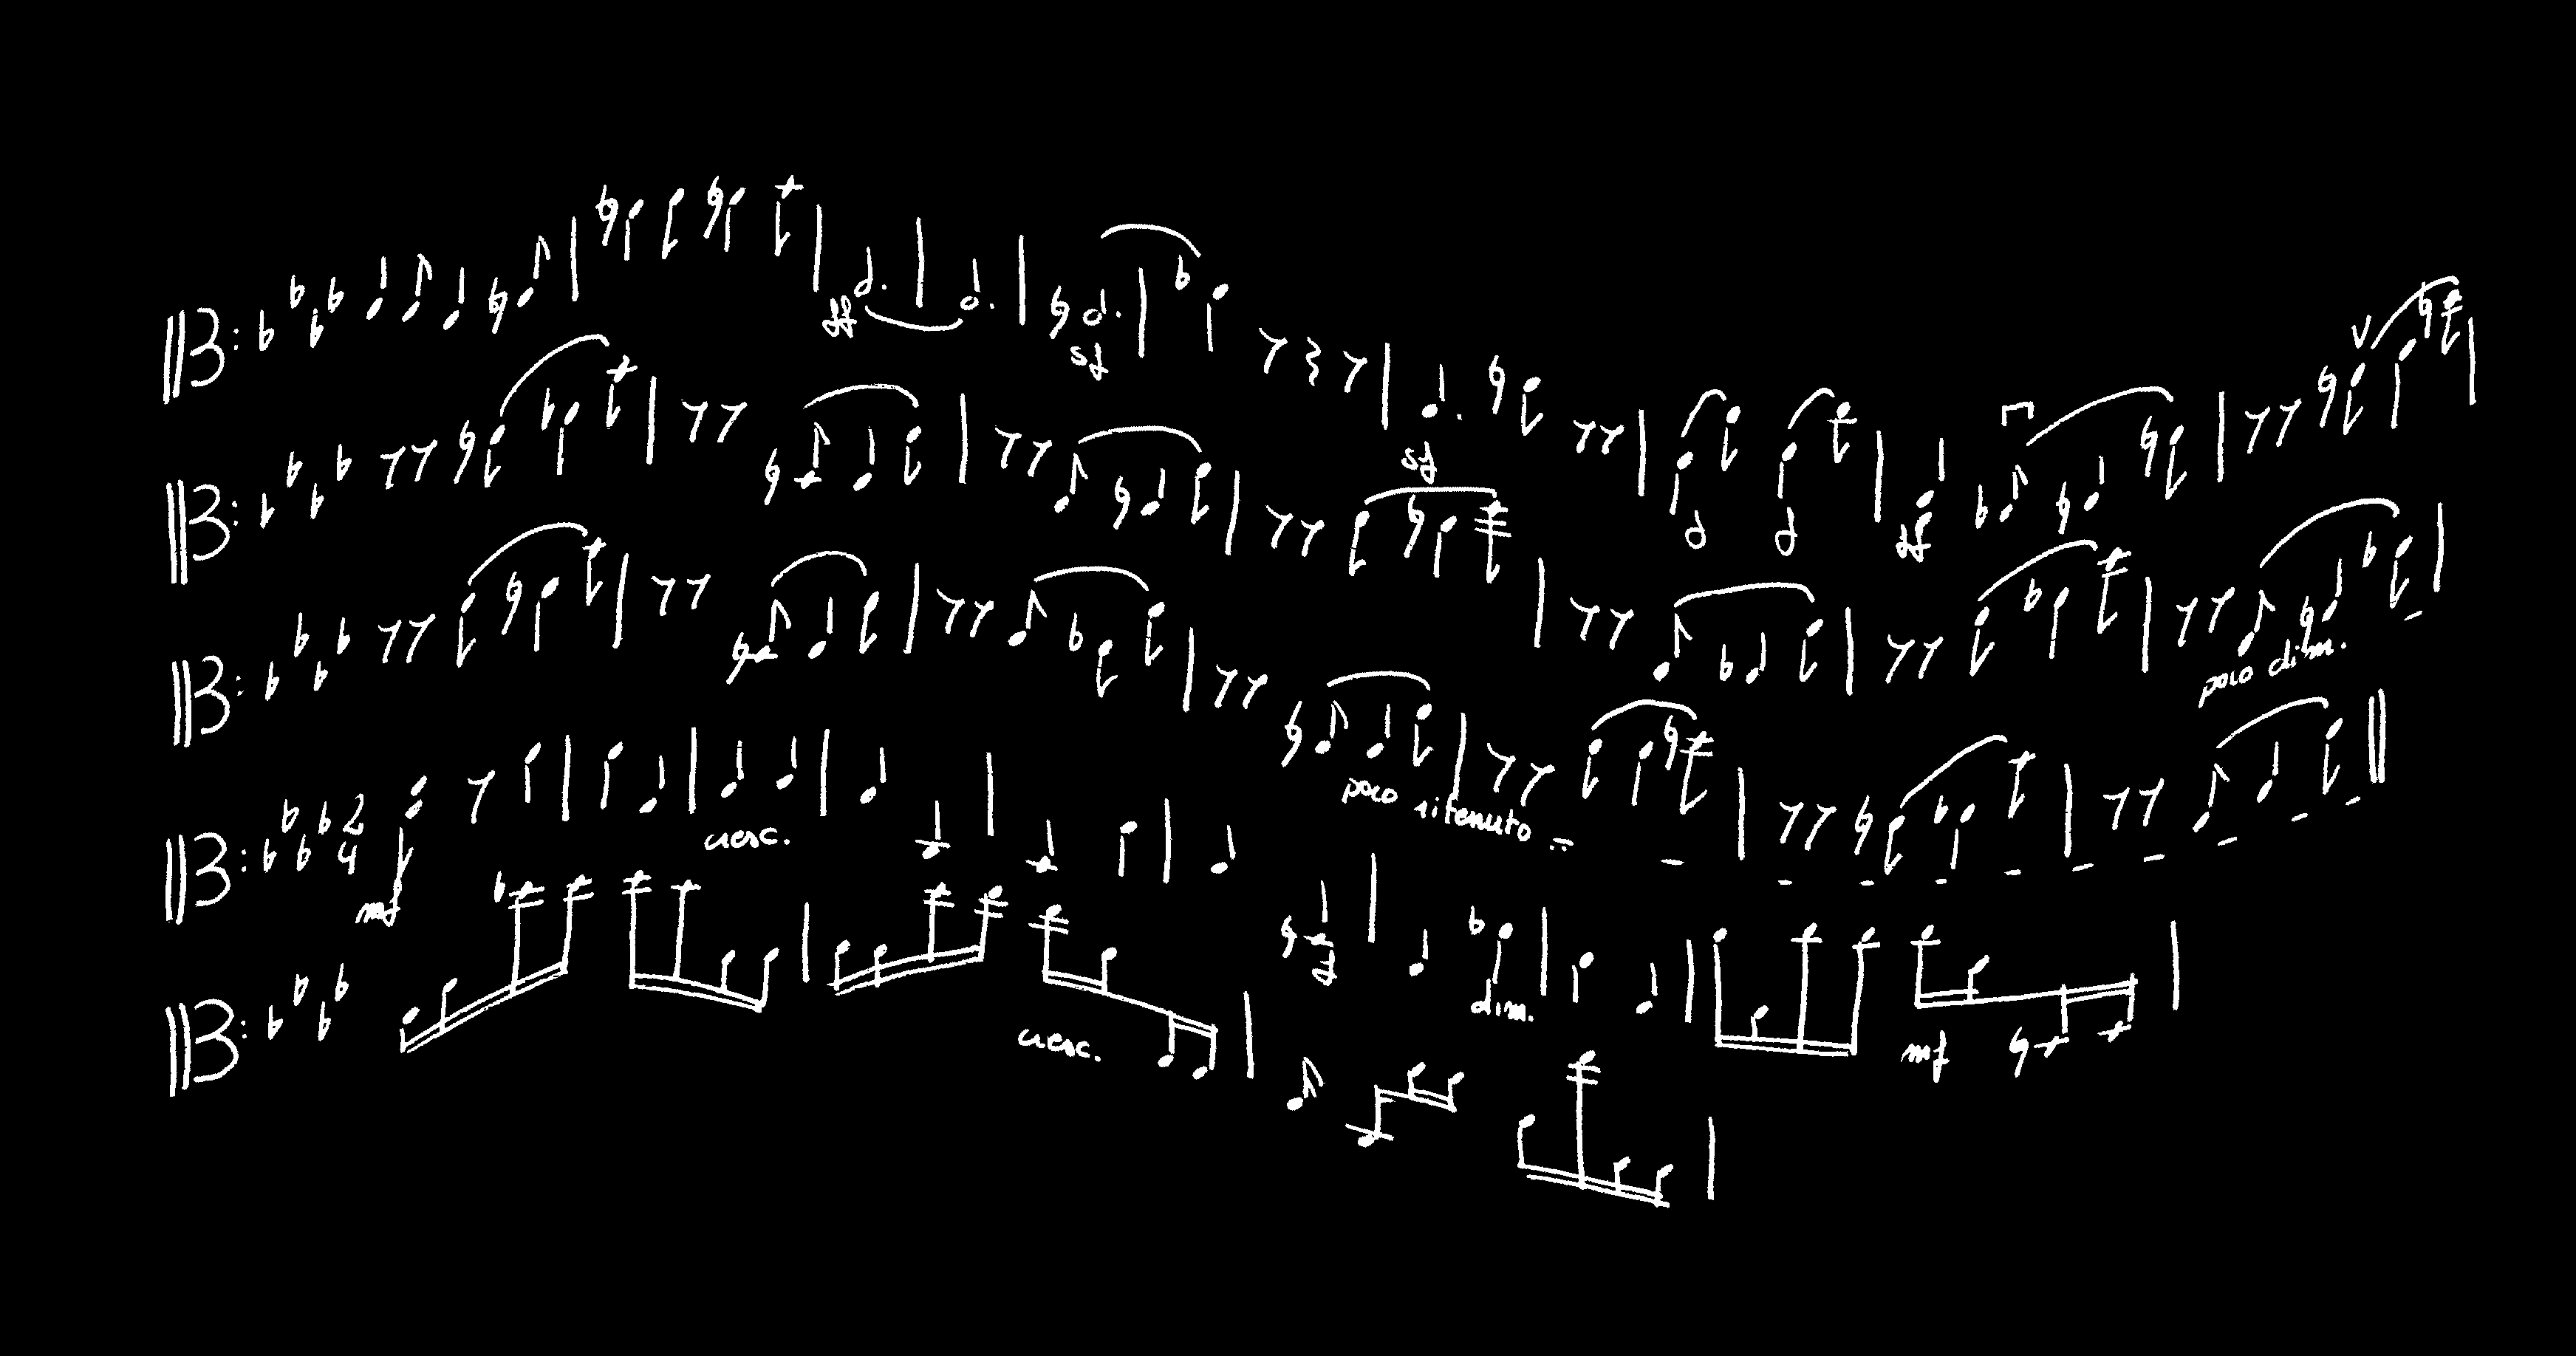 ff
sf
sf
ff
poco dim.
poco ritenuto
2
4
mf
cresc.
dim.
cresc.
mf